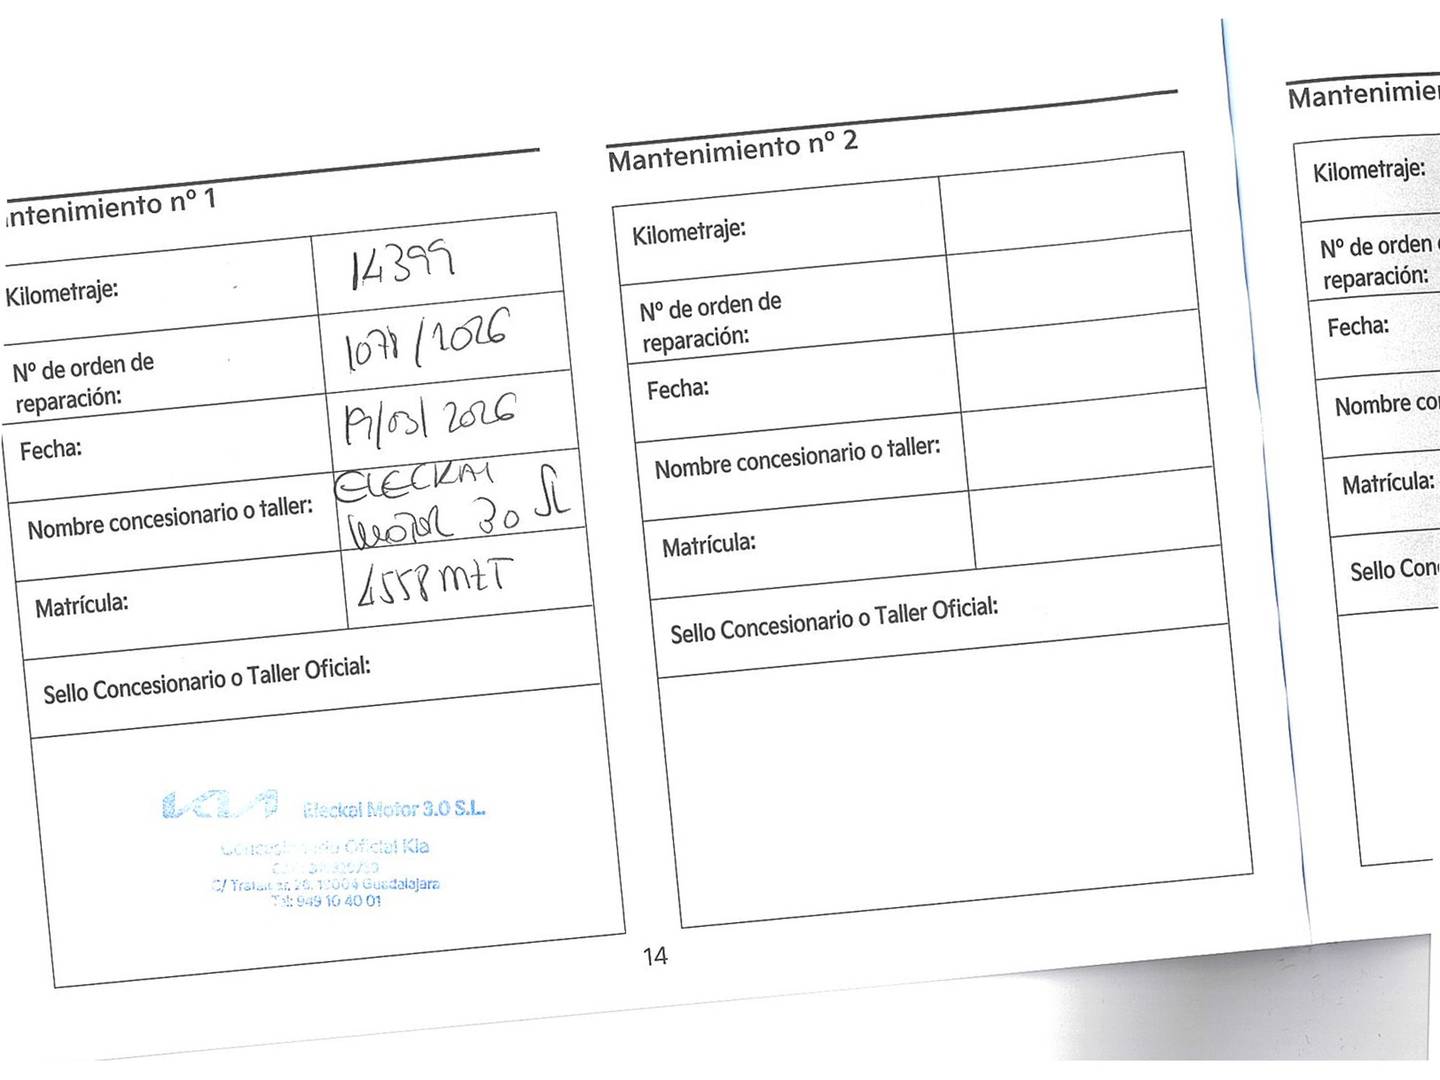 ntenimiento nº 1
Kilometraje: 14399
Nº de orden de
reparación: 1078/2026
Fecha: 19/03/2026
Nombre concesionario o taller: ELECKAI
MOTOR 30 SL
Matrícula: 4558 MZT
Sello Concesionario o Taller Oficial:
KIA Eleckai Motor 3.0 S.L.
Concesionario Oficial Kia
C/ Trafalgar, 26. 19004 Guadalajara
Tel: 949 10 40 01
Mantenimiento nº 2
Kilometraje:
Nº de orden de
reparación:
Fecha:
Nombre concesionario o taller:
Matrícula:
Sello Concesionario o Taller Oficial:
14
Mantenimie
Kilometraje:
Nº de orden
reparación:
Fecha:
Nombre co
Matrícula:
Sello Con